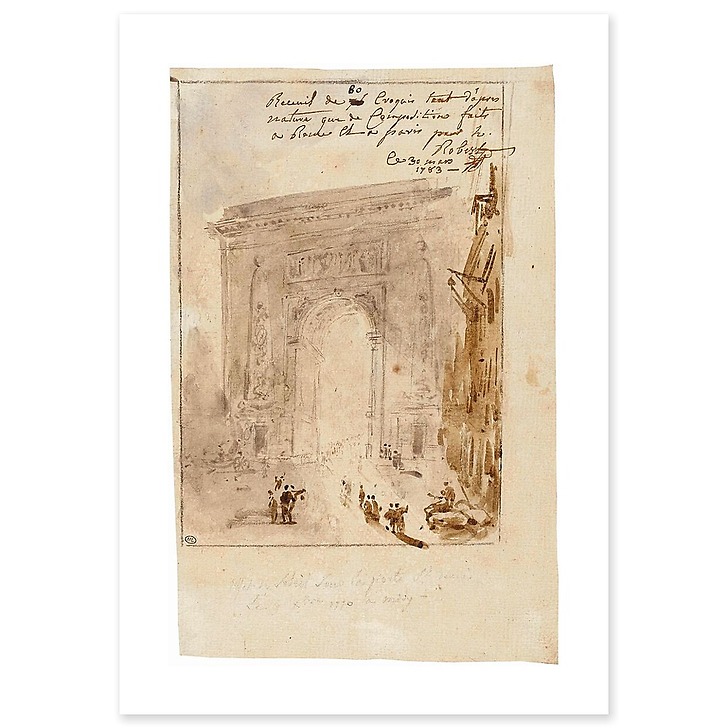 80
Recueil de Croquis tant d'apres
nature que de Compositions faits
a Rome Et a paris par h.
Robert
le 30 mars
1783
sous la porte St
1770 a